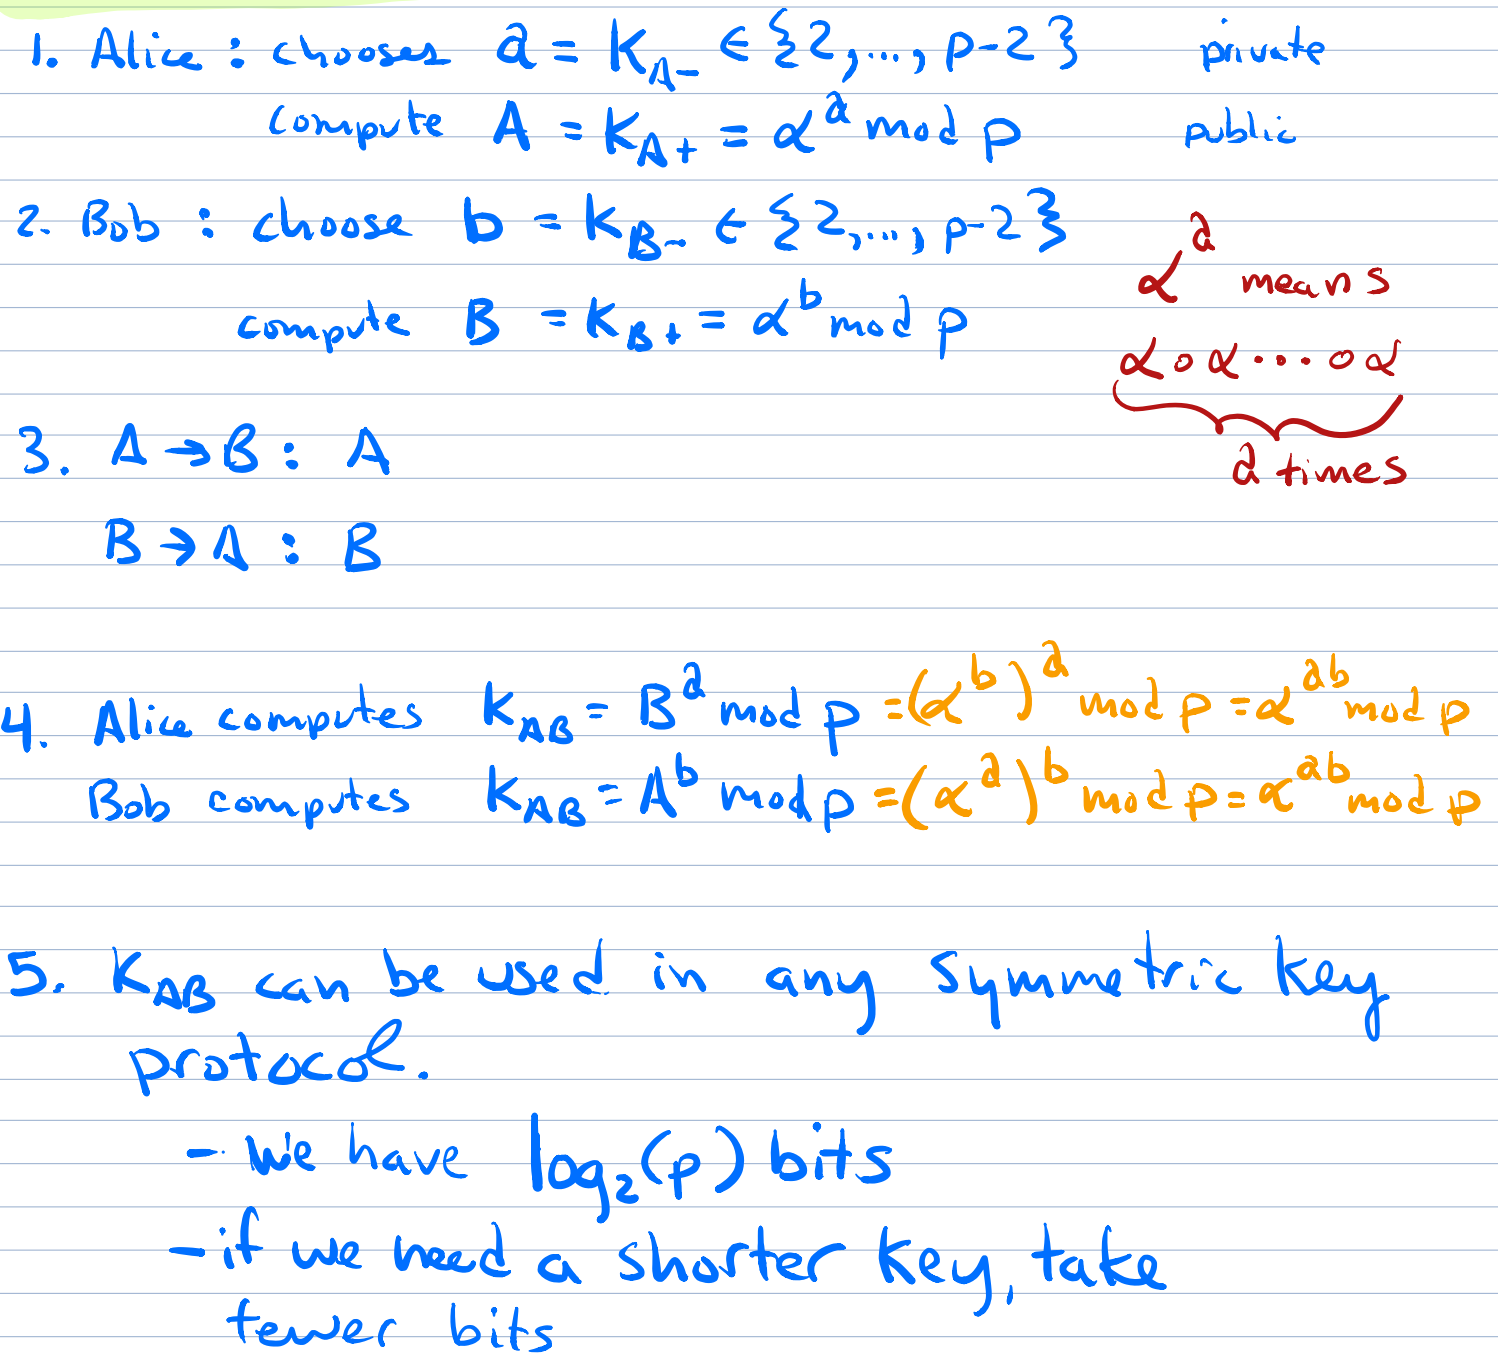 1. Alice : chooses a = K_A- ∈ {2,..., p-2} private
compute A = K_A+ = α^a mod p public
2. Bob : choose b = K_B- ∈ {2,..., p-2}
compute B = K_B+ = α^b mod p
α^a means
α∘α···∘α
a times
3. A → B : A
B → A : B
4. Alice computes K_AB = B^a mod p = (α^b)^a mod p = α^ab mod p
Bob computes K_AB = A^b mod p = (α^a)^b mod p = α^ab mod p
5. K_AB can be used in any symmetric key
protocol.
- we have log_2(p) bits
- if we need a shorter key, take
fewer bits